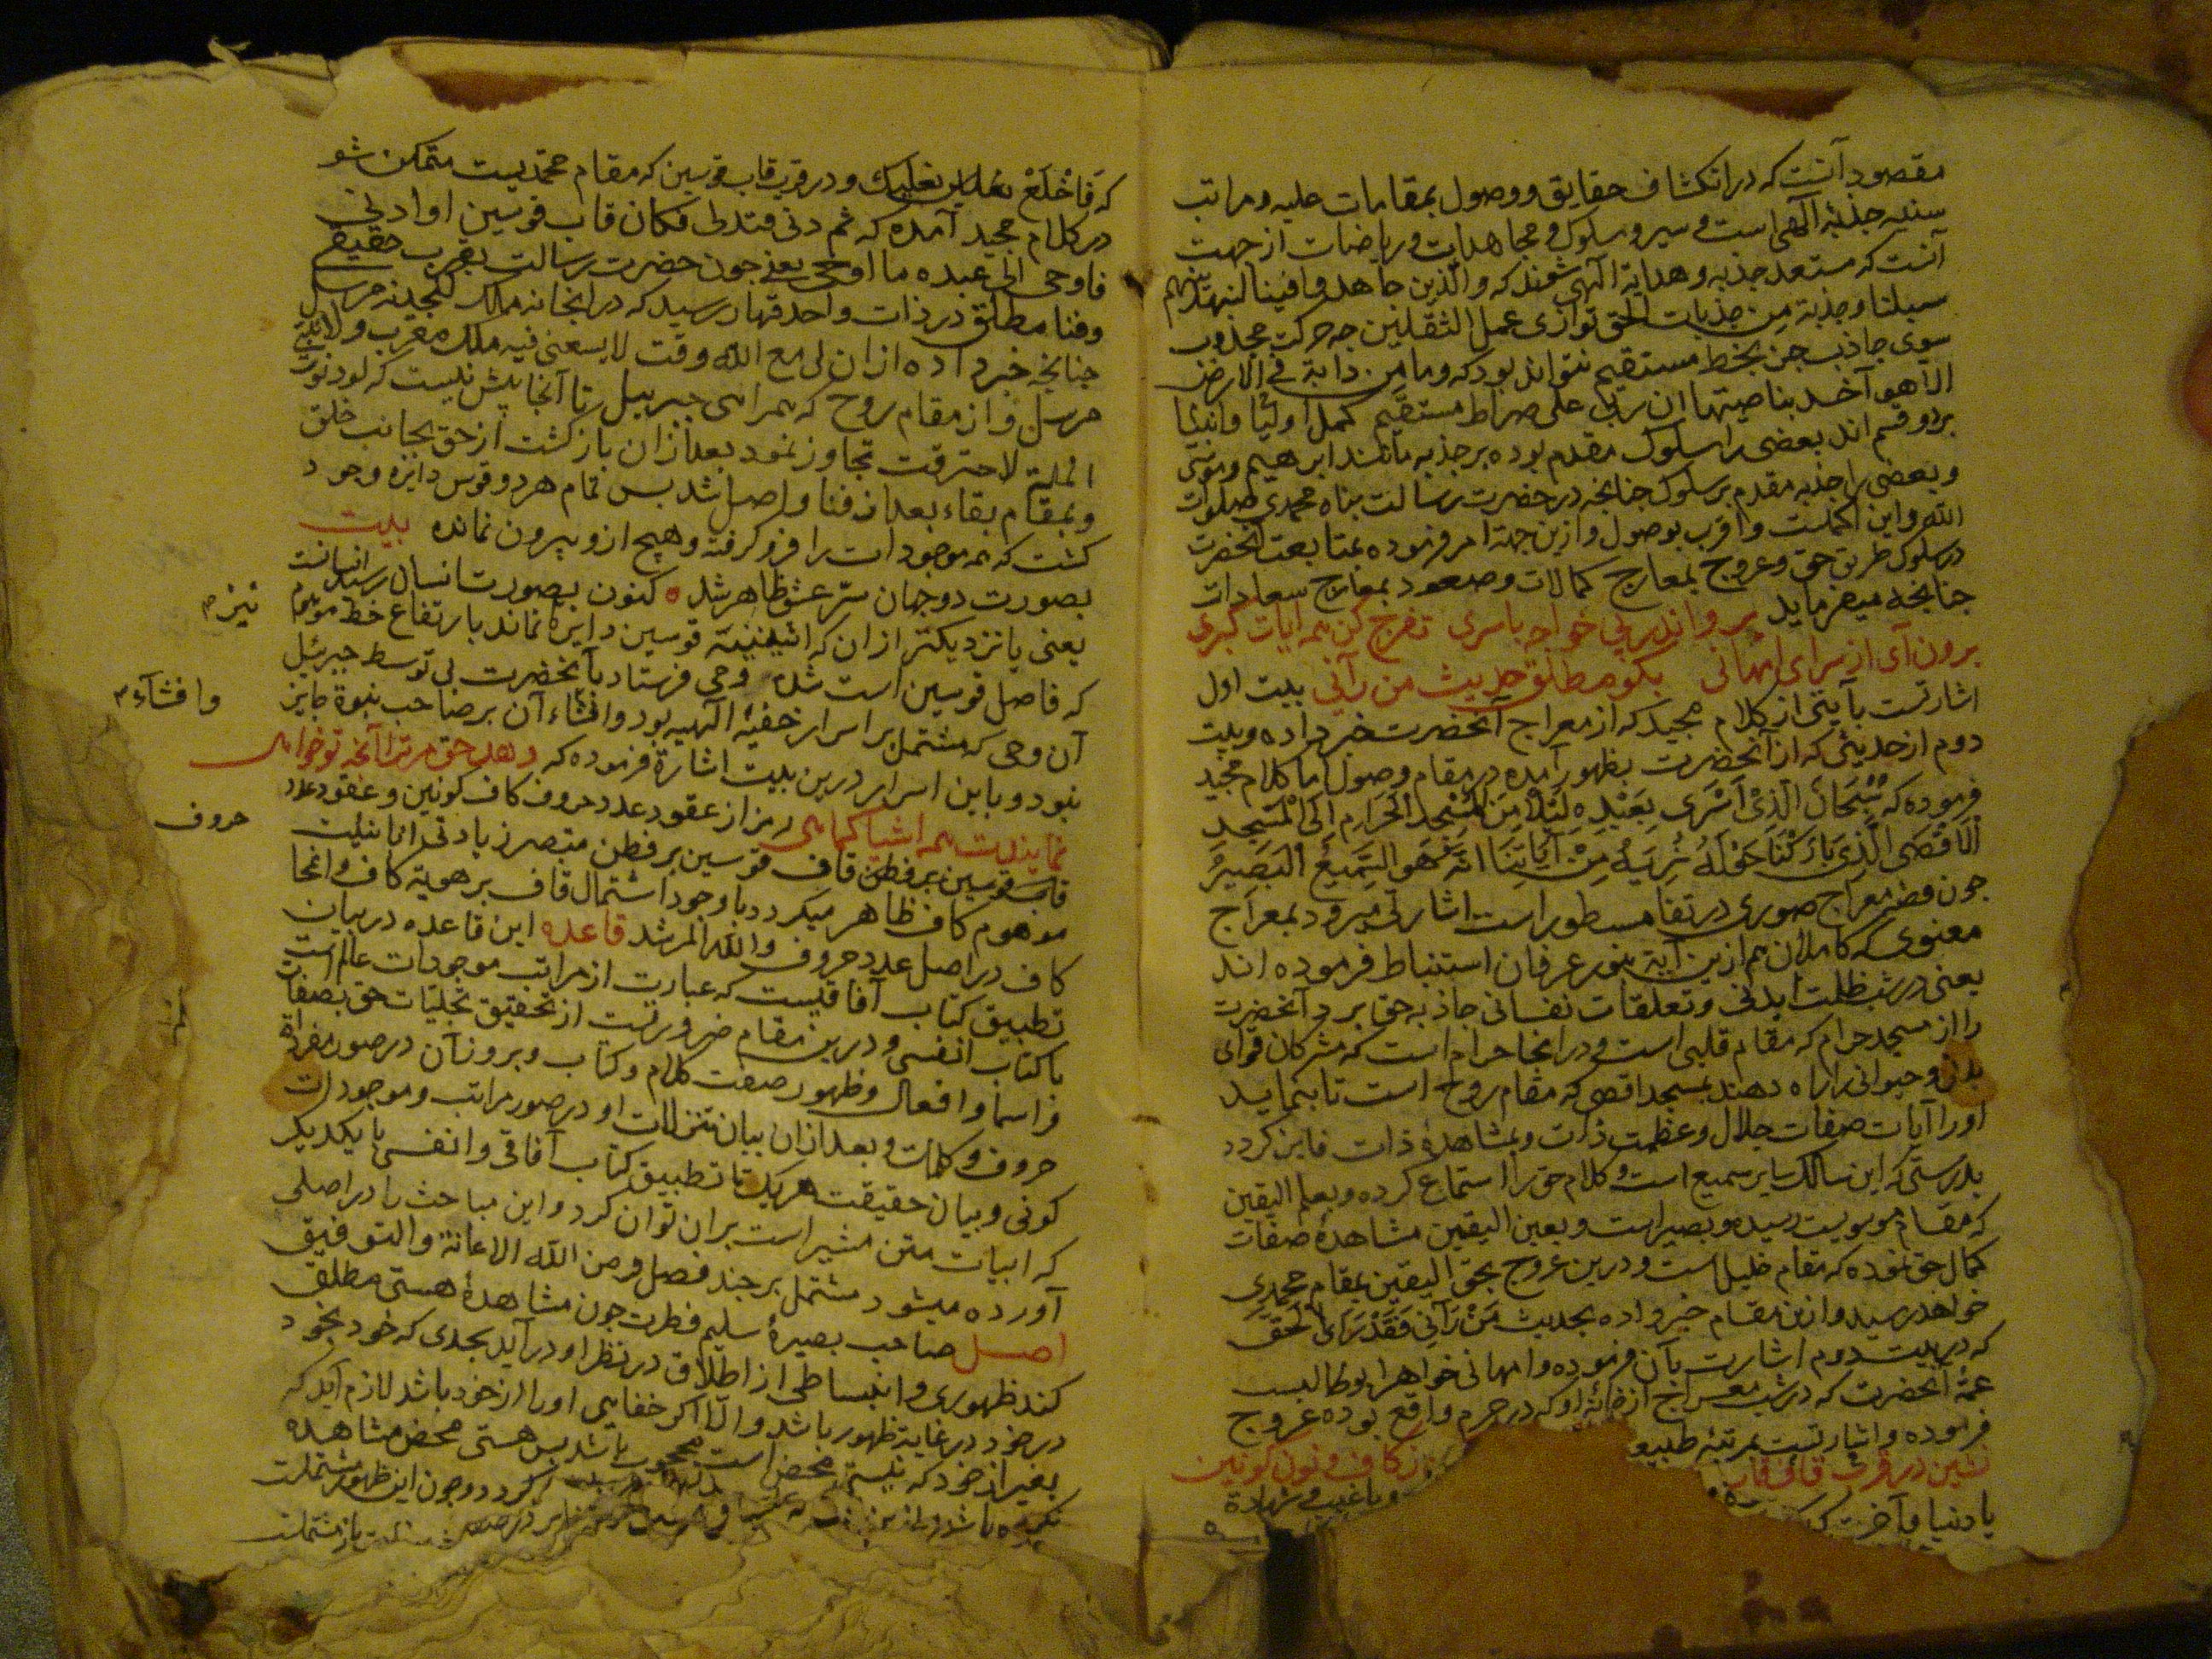 مقصود آنست که در انکشاف حقایق و وصول بمقامات علیه و مراتب
سنیه جذبۀ الهی است و سیر و سلوک و مجاهدات و ریاضات از جهت
آنست که مستعد جذبه و هدایة الهی شوند که والذین جاهدوا فینا لنهدینهم
سبلنا و جذبة من جذبات الحق توازی عمل الثقلین چه حرکت مجذوب
سوی جاذب جز بخط مستقیم نتواند بود که و ما من دابة فی الارض
الا هو آخذ بناصیتها ان ربی علی صراط مستقیم کمل اولیا و انبیا
بر دو قسم اند بعضی را سلوک مقدم بوده بر جذبه مانند ابرهیم و موسی
و بعضی را جذبه مقدم بر سلوک جنانجه در حضرت رسالت بناه محمدی صلوات
الله و این اکملست و اقرب بوصول و ازین جهة امر فرموده بمتابعت آنحضرت
در سلوک طریق حق و عروج بمعارج کمالات و صعود بمعارج سعادات
جنانجه میفرماید برو اندر پی خواجه باسری تفرج کن همه ایات کبری
برون آی از سرای امهانی بکو مطلق حدیث من رآنی بیت اول
اشارتست بآیتی از کلام مجید که از معراج آنحضرت خبر داده و بیت
دوم از حدیثی که از آنحضرت بظهور آمده در مقام وصول اما کلام مجید
فرموده که سُبْحَانَ الَّذِی أَسْرَی بِعَبْدِهِ لَیْلاً مِنَ الْمَسْجِدِ الْحَرَامِ إِلَی الْمَسْجِدِ
الْأَقْصَی الَّذِی بَارَکْنَا حَوْلَهُ لِنُرِیَهُ مِنْ آیَاتِنَا انَّهُ هُوَ السَّمِیعُ الْبَصِیرُ
جون معراج صوری در تفاسیر مسطور است اشارتی میرود بمعراج
معنوی که کاملان هم ازین آیة بنور عرفان استنباط فرموده اند
یعنی در شب ظلمت ابدنی و تعلقات نفسانی جاذبه حق برد آنحضرت
را از مسجد حرام که مقام قلبی است و در انجا حرام است که مشرکان قوای
بدن و حیوانی را راه دهند بمسجد اقصی که مقام روح است تا بنماید
اورا آیات صفات جلال و عظمت ذات و بمشاهدۀ ذات فایز کردد
بدرستی که این سالک سایر سمیع است و کلام حق را استماع کرده و بعلم الیقین
که مقام موسویت رسیده و بصیر است و بعین الیقین مشاهدۀ صفات
کمال حق نموده که مقام خلیل است و درین عروج بحق الیقین بمقام محمدی
خواهد رسید و ازین مقام خبر داده بحدیث مَنْ رَآنِی فَقَدْ رَأی الْحَقَّ
که در بیت دوم اشارت بآن فرموده و امهانی خواهر ابوطالبست
عمۀ آنحضرت که در شب معراج از خانۀ او که در حرم واقع بوده عروج
فرموده و اشارتست بمرتبۀ طبیع
ز کاف و نون کونین نشین در قرب قاف قاب
یا دنیا و آخرت و یا غیب و شهادة
که فَاخْلَعْ نعلیک و در قرب قاب قوسین که مقام محمدیست متمکن شو
در کلام مجید آمده که ثم دنی فتدلی فکان قاب قوسین او ادنی
فاوحی الی عبده ما اوحی یعنی جون حضرت رسالت بقرب حقیقی
و فنا مطلق در ذات واحد قهار رسید که در انجا نه مالک کنجد نه مرسل
جنانجه خبر داده از ان لی مع الله وقت لا یسعنی فیه ملک مقرب و لا نبی
مرسل و از مقام روح که همراهی جبرییل تا آنجا بیش نیست که لو دنوت
انملة لاحترقت تجاوز نمود بعد از ان باز کشت از حق بجانب خلق
و بمقام بقاء بعد از فنا واصل شد بس تمام هر دو قوس دایره وجود
کشت که همه موجودات را فرو کرفته و هیچ ازو بیرون نمانده بیت
بصورت دو جهان سرّ عشق ظاهر شد کنون بصورت انسان رسید انسانست
یعنی یا نزدیکتر از ان که اثنینیّة قوسین دایره نماند بارتفاع خط موهوم نیز
که فاصل قوسین است شده وحی فرستاد بآنحضرت بی توسط جبرئیل
آن وحی که مشتمل بر اسرار خفیۀ الهیه بود و افشاء آن بر صاحب نبوة جایز و افشآء
نبود و باین اسرار درین بیت اشارة فرموده که دهد حق مر ترا آنچه تو خواهی
نمایندت همه اشیا کماهی رمز از عقود عدد حروف کاف کونین و عقود عدد
قاب قوسین بر فطن قاف قوسین بر فطن متبصر زیادتی اثنینیت حروف
موهوم کاف ظاهر میکردد با وجود اشتمال قاف بر هویة کاف و انمحا
کاف در اصل عدد حروف و الله المرشد قاعده این قاعده در بیان
تطبیق کتاب آفاقیست که عبارت از مراتب موجودات عالم است
با کتاب انفسی و درین مقام ضرورتست از تحقیق تجلیات حق بصفات
و اسما و افعال و ظهور صفت کلام و کتاب و بروز آن در صور مفردات
حروف و کلمات و بعد از ان بیان تنزلات او در صور مراتب و موجودات
کونی و بیان حقیقت هر یک تا تطبیق کتاب آفاقی و انفسی با یکدیکر
که ابیات متن مشیر است بر ان توان کرد و این مباحث را در اصلی
آورده میشود مشتمل بر جند فصل و من الله الاعانة و التوفیق
اصل صاحب بصیرۀ سلیم فطرت جون مشاهدۀ هستی مطلق
کند ظهوری و انبساطی از اطلاق در نظر او در آید بحدی که خود بخود
در خود در غایة ظهور باشد و الّا اکر خفایی اورا از خود باشد لازم آید که
بغیر از خود که نیستی محض است محجوب باشد بس هستی محض مشاهده
کردد و جون این ظهور مشتملست